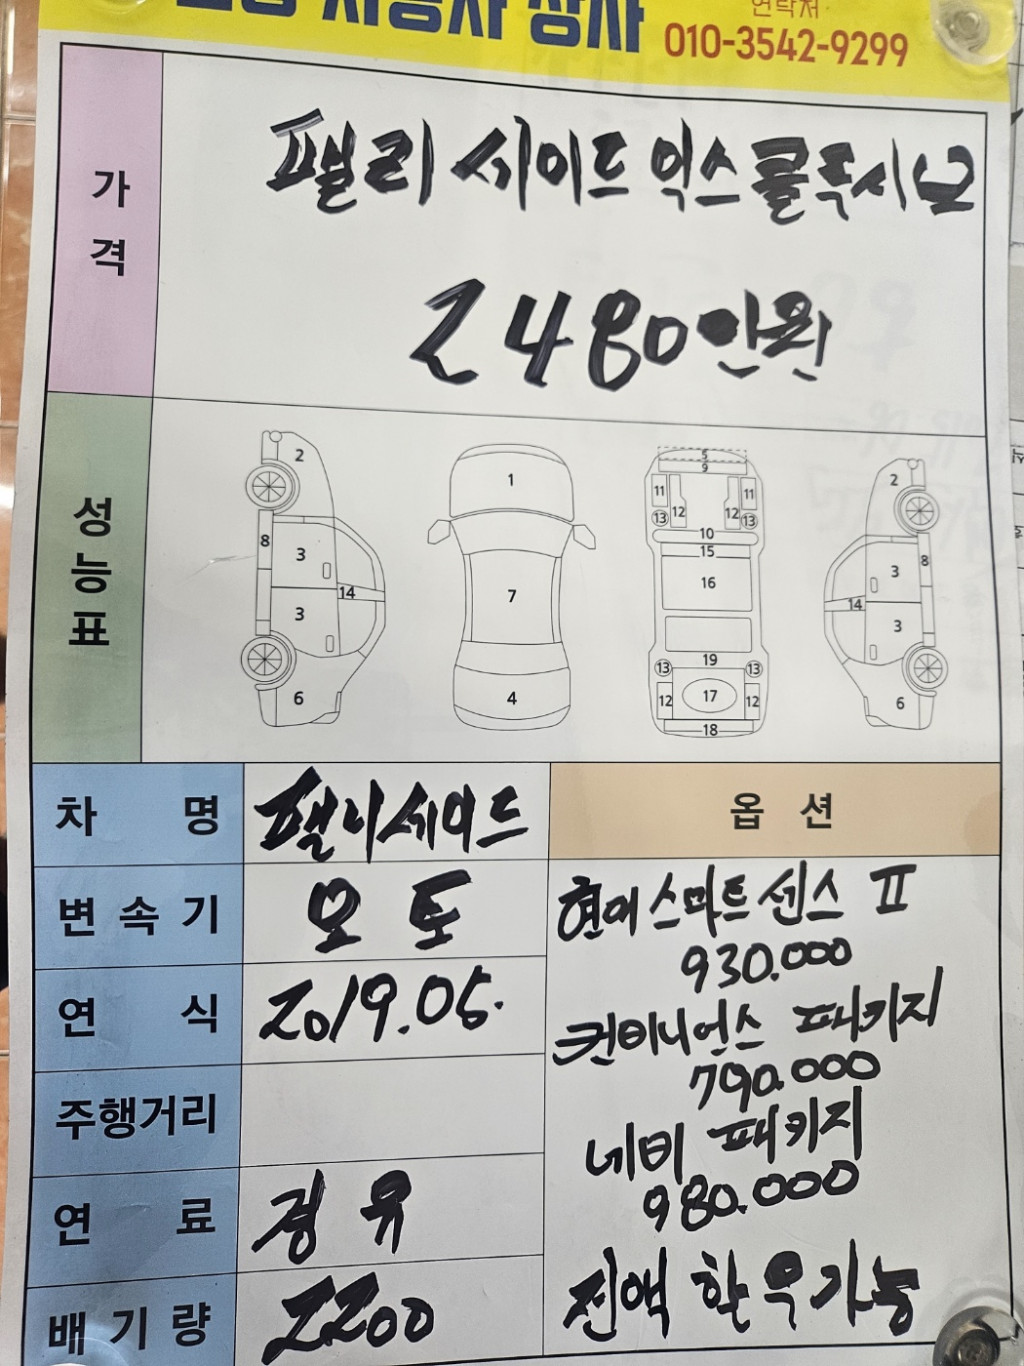 자동차 상사
연락처
010-3542-9299
가격
팰리세이드 익스클루시브
2480만원
성능표
2 8 3 14 3 6
1 7 4
5 9 11 11 12 12 13 13 10 15 16 19 13 13 12 17 12 18
2 3 8 14 3 6
차 명 팰리세이드
옵 션
변속기 오토
현대스마트센스 II
930.000
연 식 2019.05.
컨비니언스 패키지
790.000
주행거리
네비 패키지
980.000
연 료 경유
전액 할부가능
배기량 2200